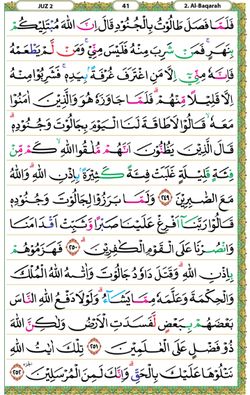 JUZ 2
41
2. Al-Baqarah
فَلَمَّا فَصَلَ طَالُوْتُ بِالْجُنُوْدِ قَالَ اِنَّ اللّٰهَ مُبْتَلِيْكُمْ
بِنَهَرٍۚ فَمَنْ شَرِبَ مِنْهُ فَلَيْسَ مِنِّيْۚ وَمَنْ لَّمْ يَطْعَمْهُ
فَاِنَّهٗ مِنِّيْٓ اِلَّا مَنِ اغْتَرَفَ غُرْفَةً ۢبِيَدِهٖۚ فَشَرِبُوْا مِنْهُ
اِلَّا قَلِيْلًا مِّنْهُمْۗ فَلَمَّا جَاوَزَهٗ هُوَ وَالَّذِيْنَ اٰمَنُوْا
مَعَهٗۙ قَالُوْا لَا طَاقَةَ لَنَا الْيَوْمَ بِجَالُوْتَ وَجُنُوْدِهٖۗ
قَالَ الَّذِيْنَ يَظُنُّوْنَ اَنَّهُمْ مُّلٰقُوا اللّٰهِۙ كَمْ مِّنْ
فِئَةٍ قَلِيْلَةٍ غَلَبَتْ فِئَةً كَثِيْرَةً ۢبِاِذْنِ اللّٰهِۗ وَاللّٰهُ
مَعَ الصّٰبِرِيْنَ ٢٤٩ وَلَمَّا بَرَزُوْا لِجَالُوْتَ وَجُنُوْدِهٖ
قَالُوْا رَبَّنَآ اَفْرِغْ عَلَيْنَا صَبْرًا وَّثَبِّتْ اَقْدَامَنَا
وَانْصُرْنَا عَلَى الْقَوْمِ الْكٰفِرِيْنَۗ ٢٥٠ فَهَزَمُوْهُمْ
بِاِذْنِ اللّٰهِۗ وَقَتَلَ دَاوٗدُ جَالُوْتَ وَاٰتٰىهُ اللّٰهُ الْمُلْكَ
وَالْحِكْمَةَ وَعَلَّمَهٗ مِمَّا يَشَاۤءُۗ وَلَوْلَا دَفْعُ اللّٰهِ النَّاسَ
بَعْضَهُمْ بِبَعْضٍ لَّفَسَدَتِ الْاَرْضُ وَلٰكِنَّ اللّٰهَ
ذُوْ فَضْلٍ عَلَى الْعٰلَمِيْنَ ٢٥١ تِلْكَ اٰيٰتُ اللّٰهِ
نَتْلُوْهَا عَلَيْكَ بِالْحَقِّۗ وَاِنَّكَ لَمِنَ الْمُرْسَلِيْنَ ٢٥٢